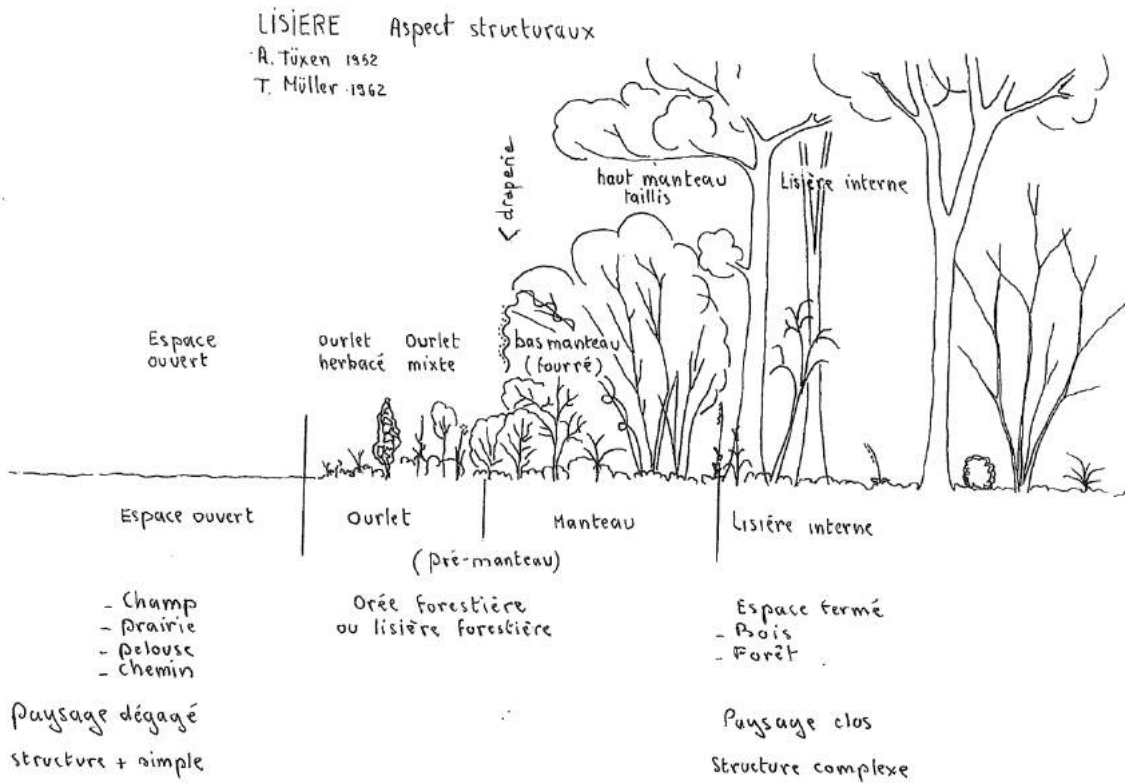 LISIERE Aspect structuraux
R. Tüxen 1952
T. Müller 1962
< draperie
haut manteau
taillis
Lisière interne
Espace
ouvert
ourlet
herbacé
Ourlet
mixte
bas manteau
(fourré)
Espace ouvert
Ourlet
Manteau
Lisière interne
(pré-manteau)
- Champ
- prairie
- pelouse
- chemin
Orée forestière
ou lisière forestière
Espace fermé
- Bois
- Forêt
Paysage dégagé
Paysage clos
structure + simple
Structure complexe